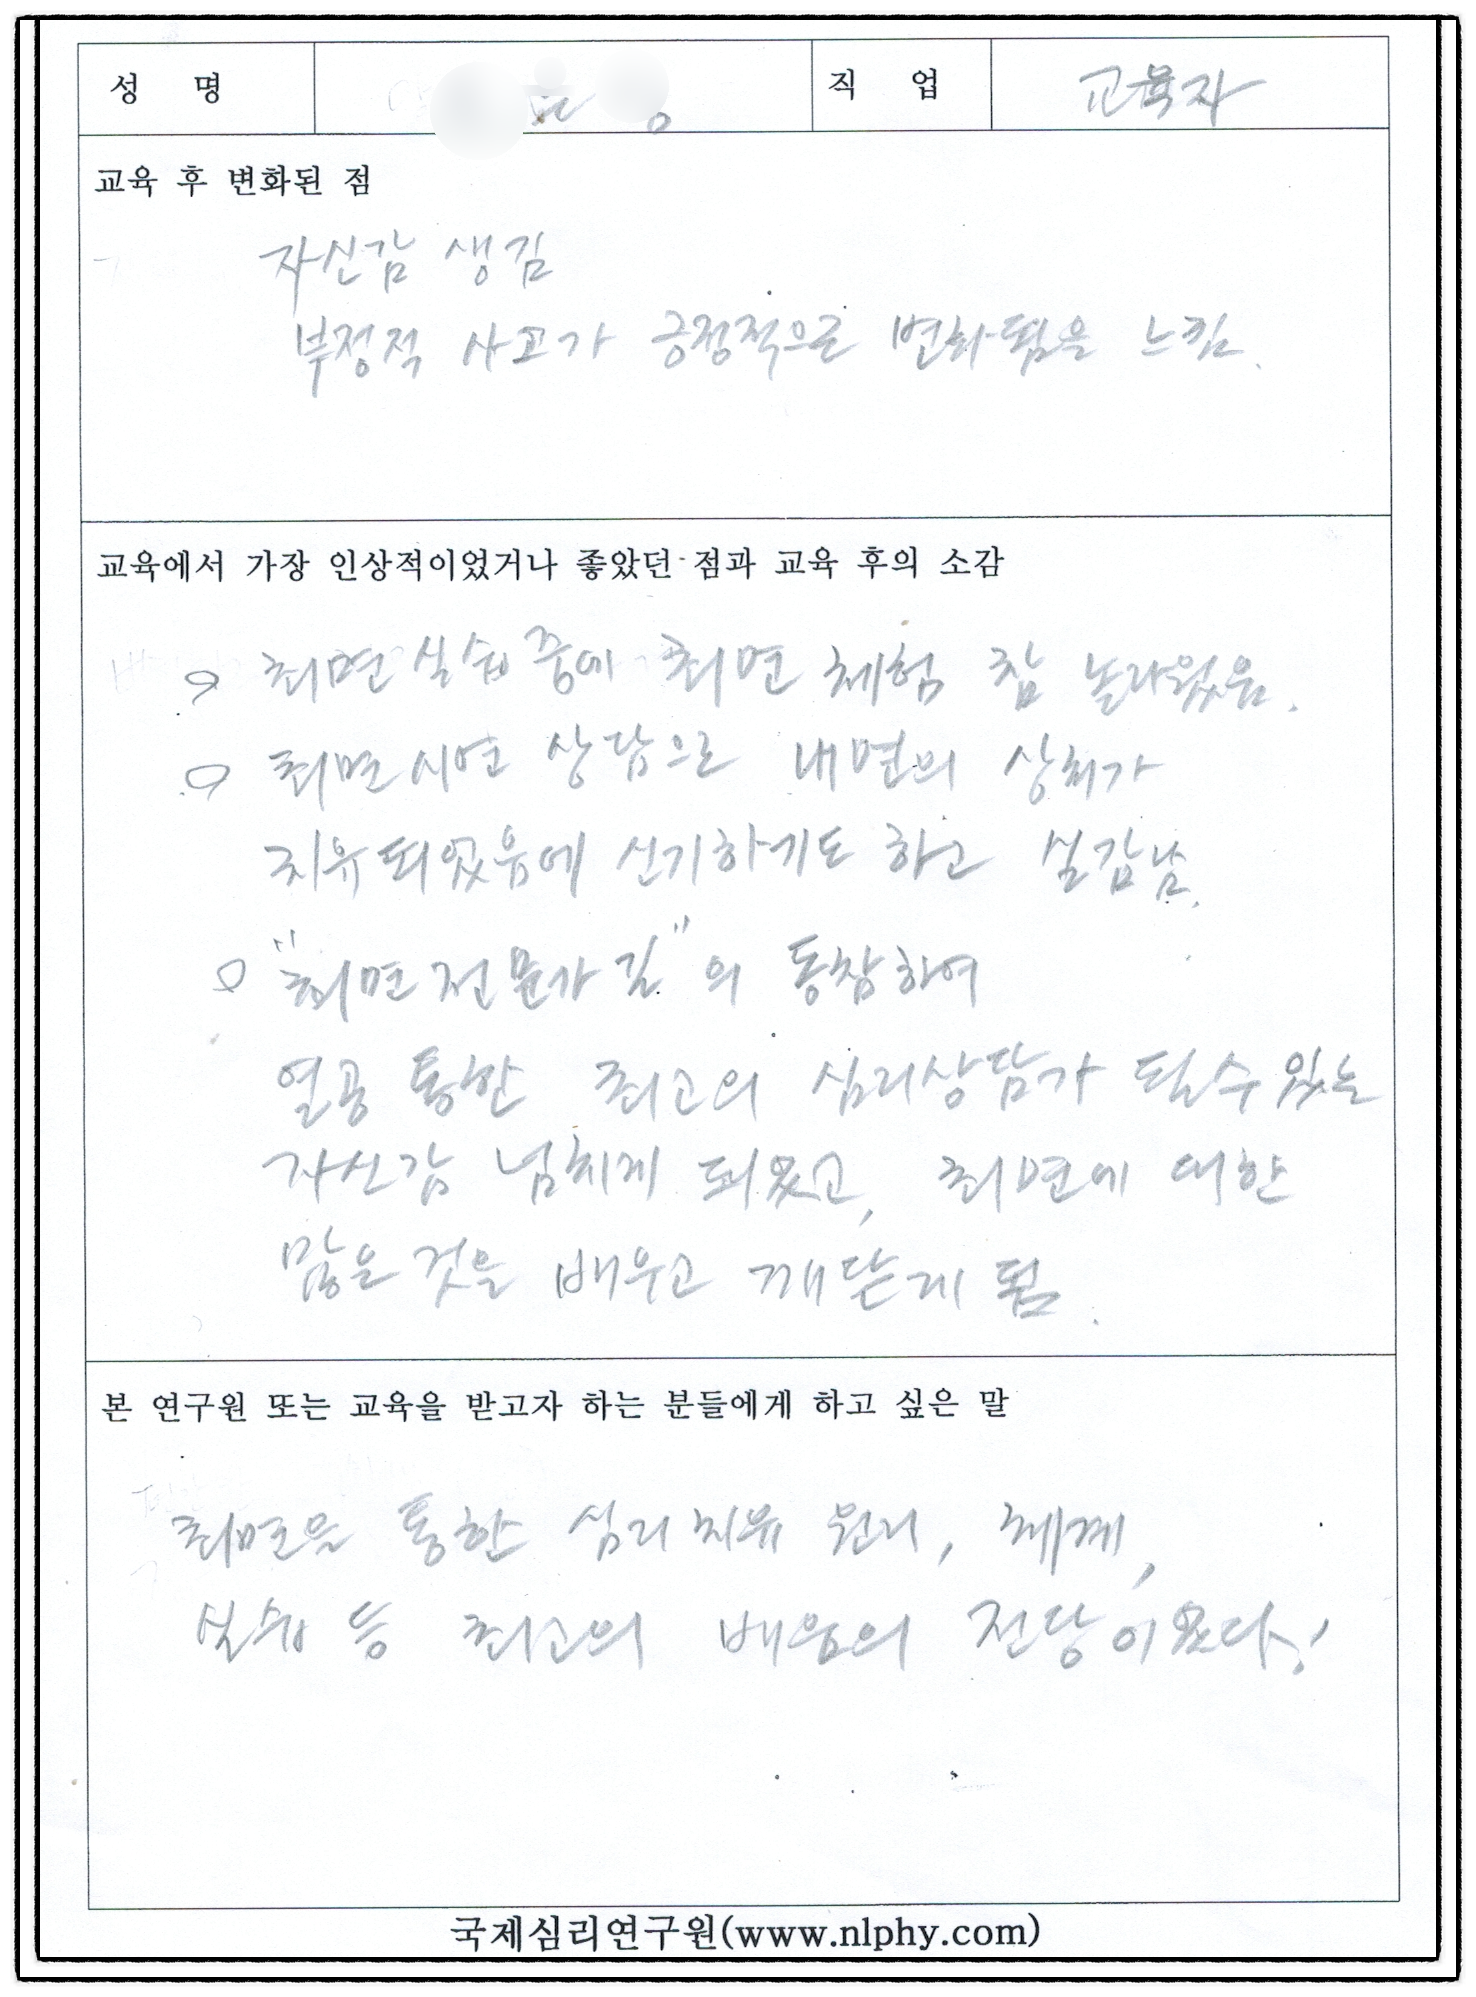 성 명
직 업 교육자
교육 후 변화된 점
자신감 생김
부정적 사고가 긍정적으로 변화됨을 느낌.
교육에서 가장 인상적이었거나 좋았던 점과 교육 후의 소감
최면 실습 중에 최면 체험 참 놀라웠음.
최면시연 상담으로 내면의 상처가
치유되었음에 신기하기도 하고 실감남.
"최면전문가 길"의 동참하여
열공 통한 최고의 심리상담가 될수 있는
자신감 넘치게 되었고, 최면에 대한
많은 것을 배우고 깨닫게 됨.
본 연구원 또는 교육을 받고자 하는 분들에게 하고 싶은 말
최면을 통한 심리치유 원리, 체계,
실습 등 최고의 배움의 전당이였다!
국제심리연구원(www.nlphy.com)